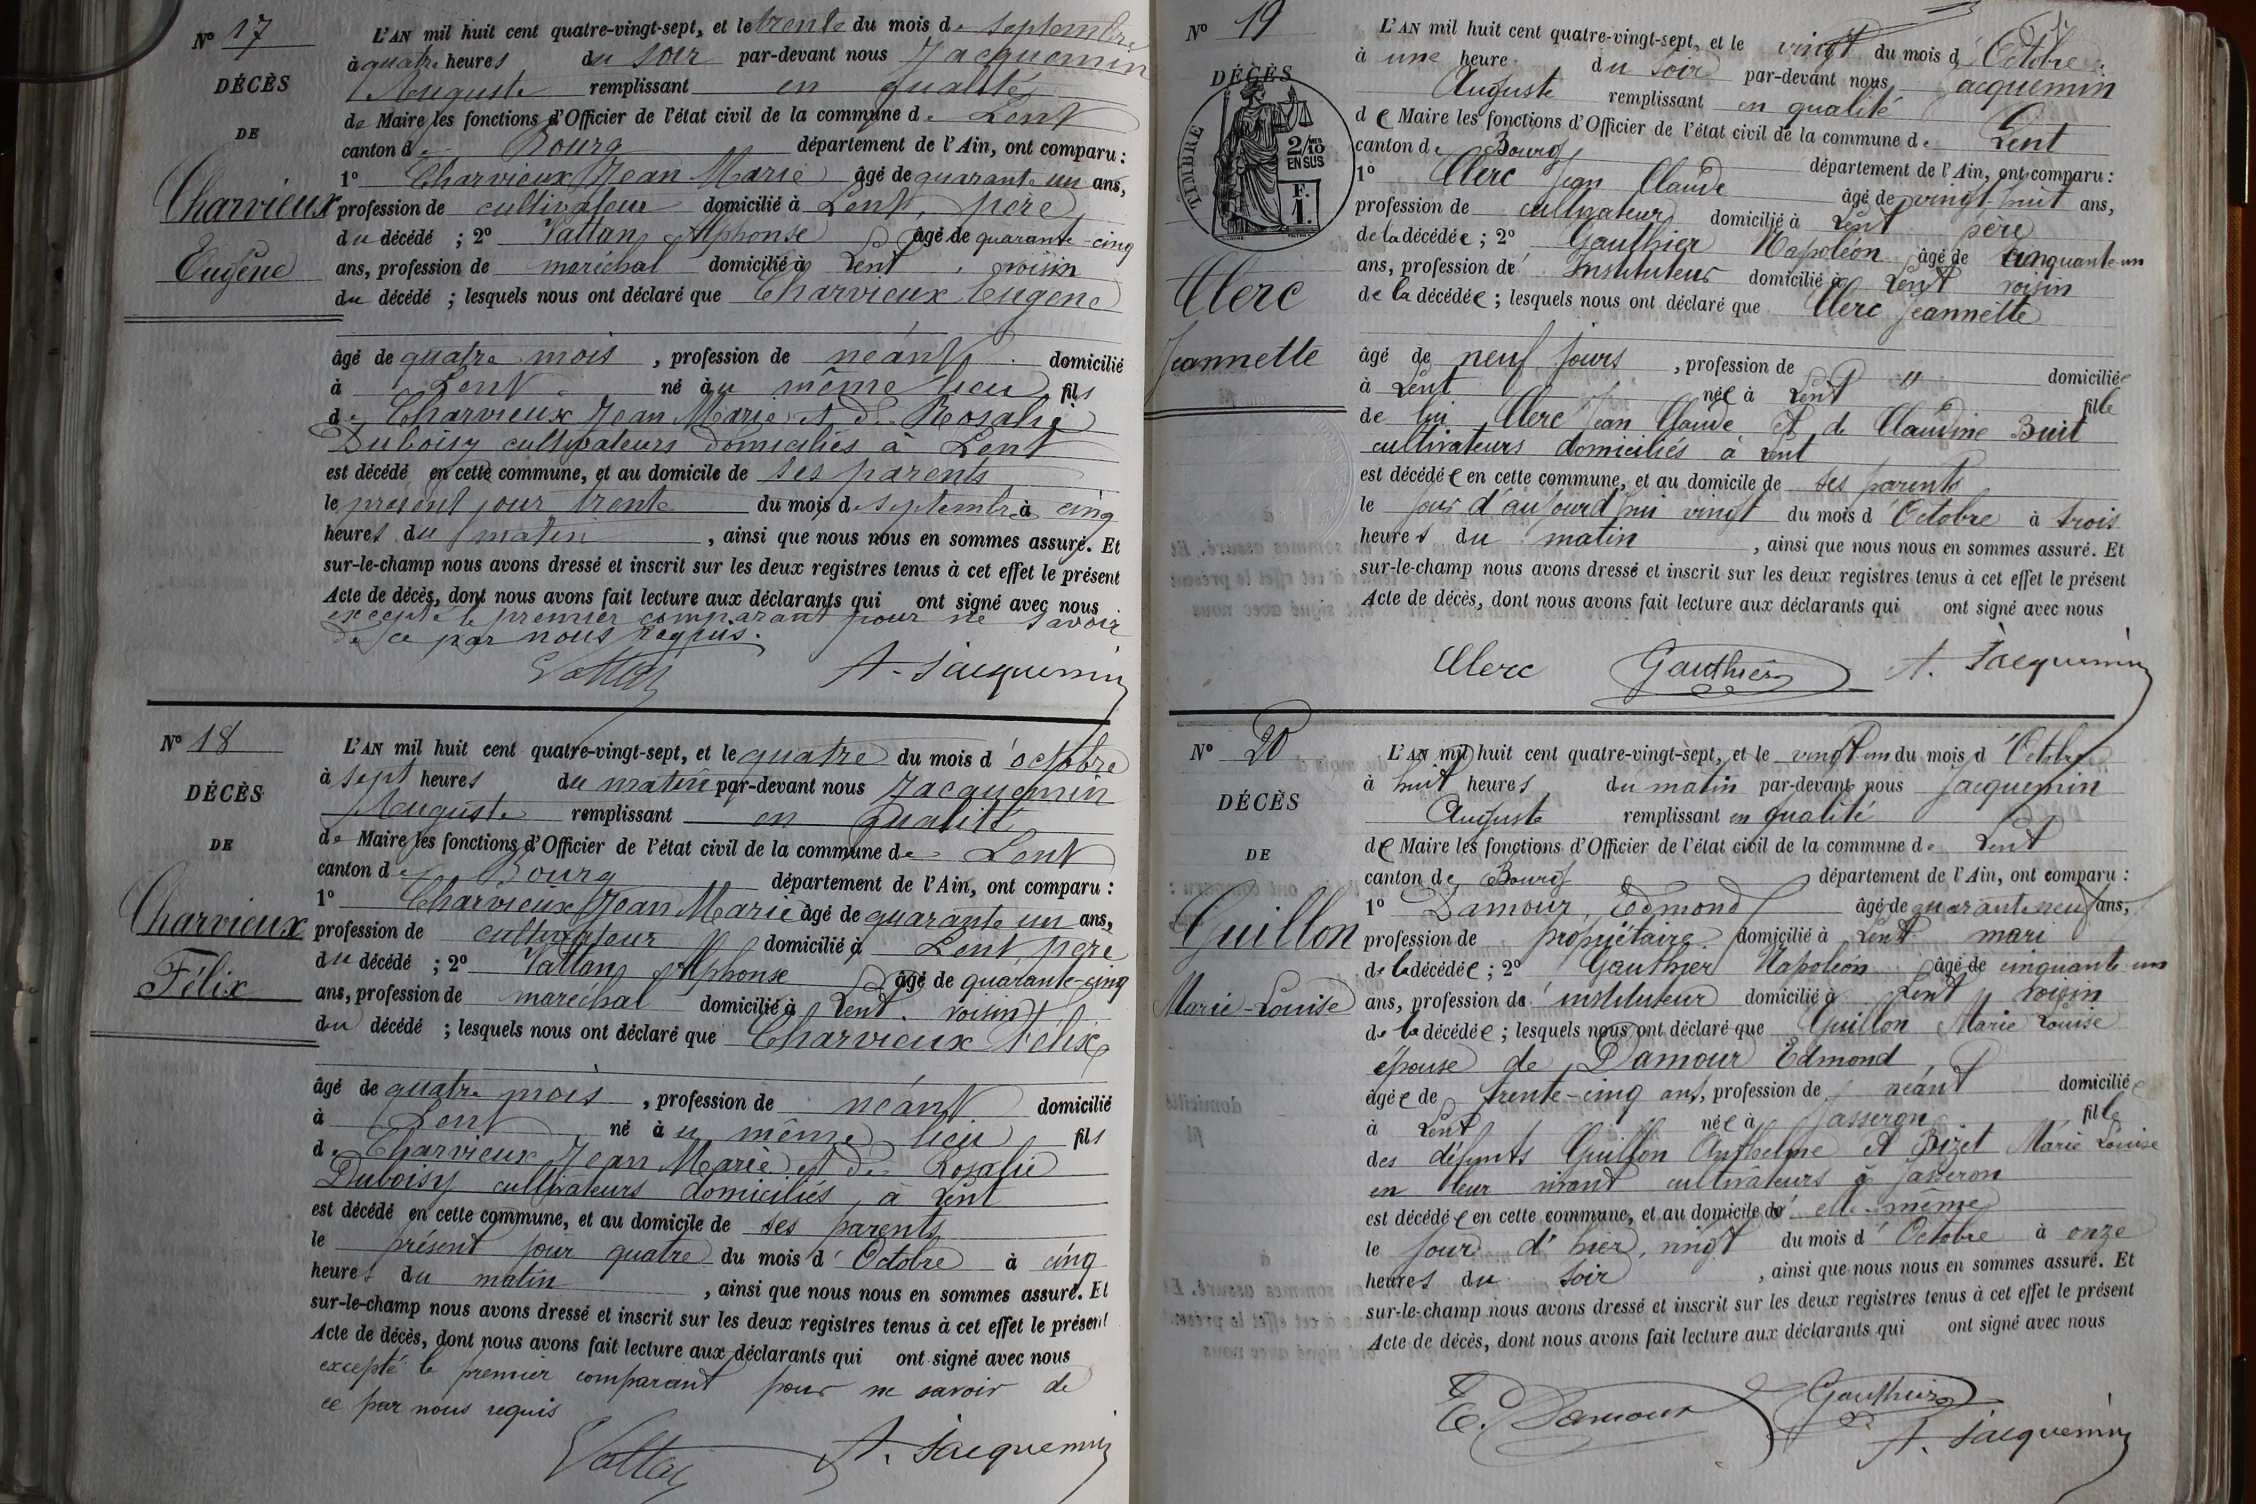 N° 17
DÉCÈS
DE
Charvieux
Eugène
L'AN mil huit cent quatre-vingt-sept, et le trente du mois de septembre
à quatre heures du soir par-devant nous Jacquemin
Auguste remplissant en qualité
de Maire les fonctions d'Officier de l'état civil de la commune de Lent
canton de Bourg département de l'Ain, ont comparu :
1° Charvieux Jean Marie âgé de quarante un ans,
profession de cultivateur domicilié à Lent, père
du décédé ; 2° Vattan Alphonse âgé de quarante-cinq
ans, profession de maréchal domicilié à Lent, voisin
du décédé ; lesquels nous ont déclaré que Charvieux Eugène
âgé de quatre mois, profession de néant domicilié
à Lent né au même lieu fils
de Charvieux Jean Marie et de Rosalie
Duboisy cultivateurs domiciliés à Lent
est décédé en cette commune, et au domicile de ses parents
le présent jour trente du mois de septembre à cinq
heures du matin, ainsi que nous nous en sommes assuré. Et
sur-le-champ nous avons dressé et inscrit sur les deux registres tenus à cet effet le présent
Acte de décès, dont nous avons fait lecture aux déclarants qui ont signé avec nous
excepté le premier comparant pour ne savoir
de ce par nous requis.
Vattan A. Jacquemin
N° 18
DÉCÈS
DE
Charvieux
Félix
L'AN mil huit cent quatre-vingt-sept, et le quatre du mois d'octobre
à sept heures du matin par-devant nous Jacquemin
Auguste remplissant en qualité
de Maire les fonctions d'Officier de l'état civil de la commune de Lent
canton de Bourg département de l'Ain, ont comparu :
1° Charvieux Jean Marie âgé de quarante un ans,
profession de cultivateur domicilié à Lent, père
du décédé ; 2° Vattan Alphonse âgé de quarante-cinq
ans, profession de maréchal domicilié à Lent. voisin
du décédé ; lesquels nous ont déclaré que Charvieux Félix
âgé de quatre mois, profession de néant domicilié
à Lent né au même lieu fils
de Charvieux Jean Marie et de Rosalie
Duboisy cultivateurs domiciliés à Lent
est décédé en cette commune, et au domicile de ses parents
le présent jour quatre du mois d'Octobre à cinq
heures du matin, ainsi que nous nous en sommes assuré. Et
sur-le-champ nous avons dressé et inscrit sur les deux registres tenus à cet effet le présent
Acte de décès, dont nous avons fait lecture aux déclarants qui ont signé avec nous
excepté le premier comparant pour ne savoir de
ce par nous requis
Vattan A. Jacquemin
N° 19
DÉCÈS
TIMBRE
2/10 MES
EN SUS
F.
1.
Clerc
Jeannette
L'AN mil huit cent quatre-vingt-sept, et le vingt du mois d'Octobre
à une heure du soir par-devant nous Jacquemin
Auguste remplissant en qualité
de Maire les fonctions d'Officier de l'état civil de la commune de Lent
canton de Bourg département de l'Ain, ont comparu :
1° Clerc Jean Claude âgé de vingt-huit ans,
profession de cultivateur domicilié à Lent père
de la décédée ; 2° Gauthier Napoléon âgé de cinquante-un
ans, profession d'Instituteur domicilié à Lent voisin
de la décédée ; lesquels nous ont déclaré que Clerc Jeannette
âgé de neuf jours, profession de " domiciliée
à Lent née à Lent fille
de lui Clerc Jean Claude et de Claudine Buit
cultivateurs domiciliés à Lent
est décédée en cette commune, et au domicile de ses parents
le jour d'aujourd'hui vingt du mois d'Octobre à trois
heures du matin, ainsi que nous nous en sommes assuré. Et
sur-le-champ nous avons dressé et inscrit sur les deux registres tenus à cet effet le présent
Acte de décès, dont nous avons fait lecture aux déclarants qui ont signé avec nous
Clerc Gauthier A. Jacquemin
N° 20
DÉCÈS
DE
Guillon
Marie-Louise
L'AN mil huit cent quatre-vingt-sept, et le vingt-un du mois d'Octobre
à huit heures du matin par-devant nous Jacquemin
Auguste remplissant en qualité
de Maire les fonctions d'Officier de l'état civil de la commune de Lent
canton de Bourg département de l'Ain, ont comparu :
1° Damour, Edmond âgé de quarante neuf ans,
profession de propriétaire domicilié à Lent mari
de la décédée ; 2° Gauthier Napoléon âgé de cinquante-un
ans, profession d'instituteur domicilié à Lent voisin
de la décédée ; lesquels nous ont déclaré que Guillon Marie Louise
épouse de Damour Edmond
âgée de trente-cinq ans, profession de néant domiciliée
à Lent née à Jasseron fille
des défunts Guillon Anthelme et Bizet Marie Louise
en leur vivant cultivateurs à Jasseron
est décédée en cette commune, et au domicile d'elle-même
le jour d'hier, vingt du mois d'Octobre à onze
heures du soir, ainsi que nous nous en sommes assuré. Et
sur-le-champ nous avons dressé et inscrit sur les deux registres tenus à cet effet le présent
Acte de décès, dont nous avons fait lecture aux déclarants qui ont signé avec nous
E. Damour Gauthier
A. Jacquemin